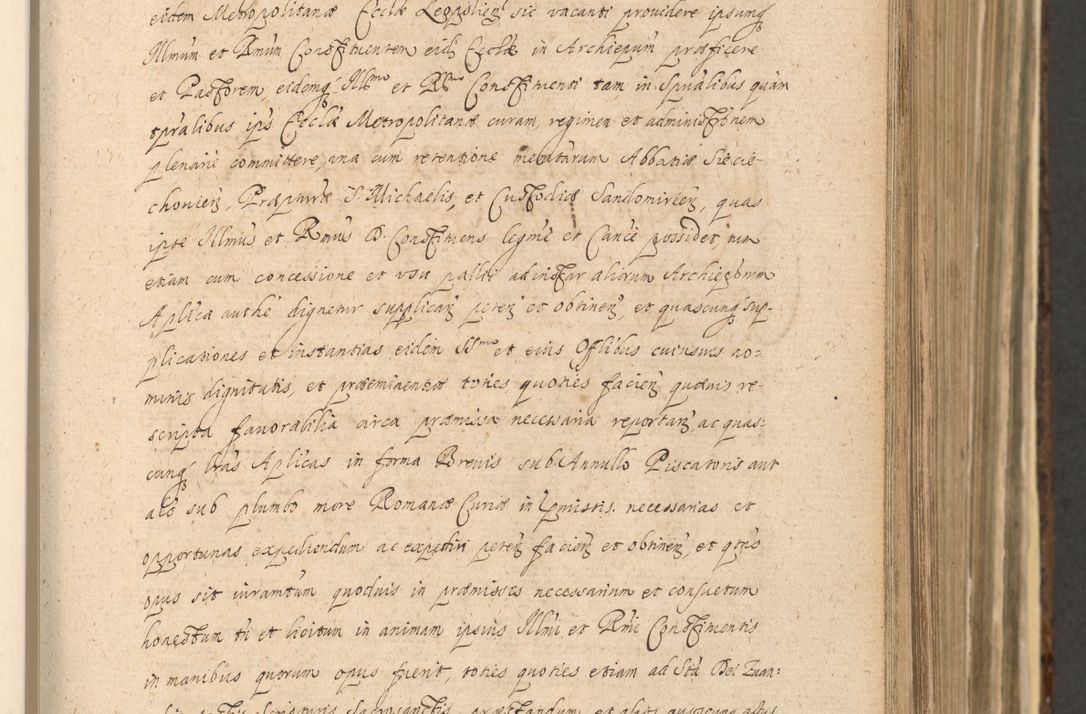 eidem Metropolitanæ Ecclæ Leopolien sic vacanti providere ipsumq
Illmum et Rmum Constituentem eid Ecclæ in Archiepum præficere
et Pastorem, eidemq Illmo et Rmo Constituenti tam in Spualibus quam
tpralibus ips Ecclæ Metropolitanæ curam, regimen et administrõnem
plenarie committere, una cum retentione me̅taram Abbatiæ Siecie-
choviens, Præpturæ S. Michaelis, et Custodiæ Sandomirien, quas
ipse Illmus et Rmus D. Constituens legme et Cance possidet, tum
etiam cum concessione et usu pallii ad instar aliorum Archiepõrum
Aplica authe dignetur supplican peten et obtinen, et quascunq sup-
plicationes et instantias eidem SSmo et eius Offlibus cuiusvis no-
minis dignitatis, et præeminentiæ toties quoties facien quævis re-
scripta favorabilia circa præmissa necessaria reportan, ac quas-
cunq lras Aplicas in forma Brevis sub Annullo Piscatoris aut
als sub plumbo more Romanæ Curiæ in præmissis necessarias et
opportunas expediendum ac expediri peten facien et obtinen, et qtus
opus sit iuramtum quodvis in præmissis necessarium et consuetum
honestum tn et licitum in animam ipsius Illmi et Rmi Constituentis
in manibus quorum opus fuerit, toties quoties etiam ad Sta Dei Evan-
Scripturis Sacrosanctis præstandum et